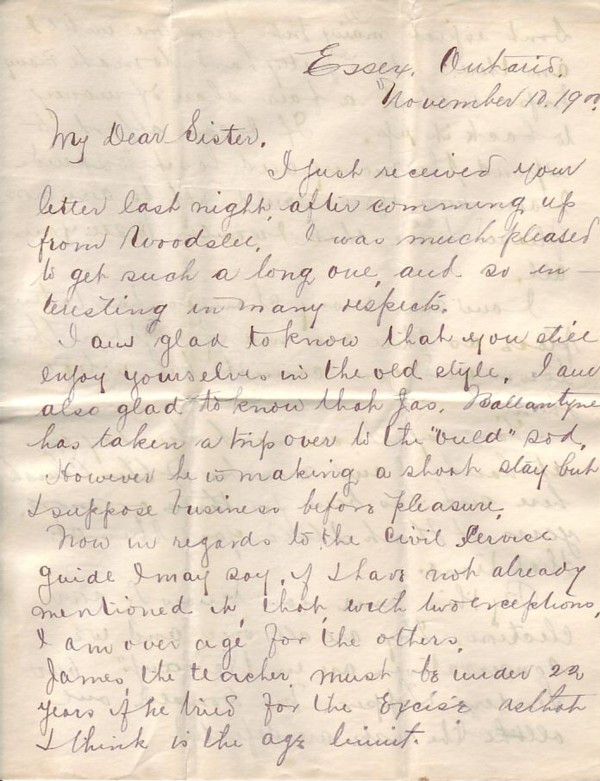 Essex, Ontario.
November 10. 1900
My Dear Sister.
I just received your
letter last night, after comming up
from Woodslee. I was much pleased
to get such a long one, and so in-
teresting in many respects.
I am glad to know that you still
enjoy yourselves in the old style. I am
also glad to know that Jas. Ballantyne
has taken a trip over to the "ould" sod.
However he is making a short stay but
I suppose business before pleasure.
Now in regards to the Civil Service
guide I may say, if I have not already
mentioned it, that, with two exceptions,
I am over age for the others.
James, the teacher, must be under 22
years if he tried for the Excise as that
I think is the age limit.